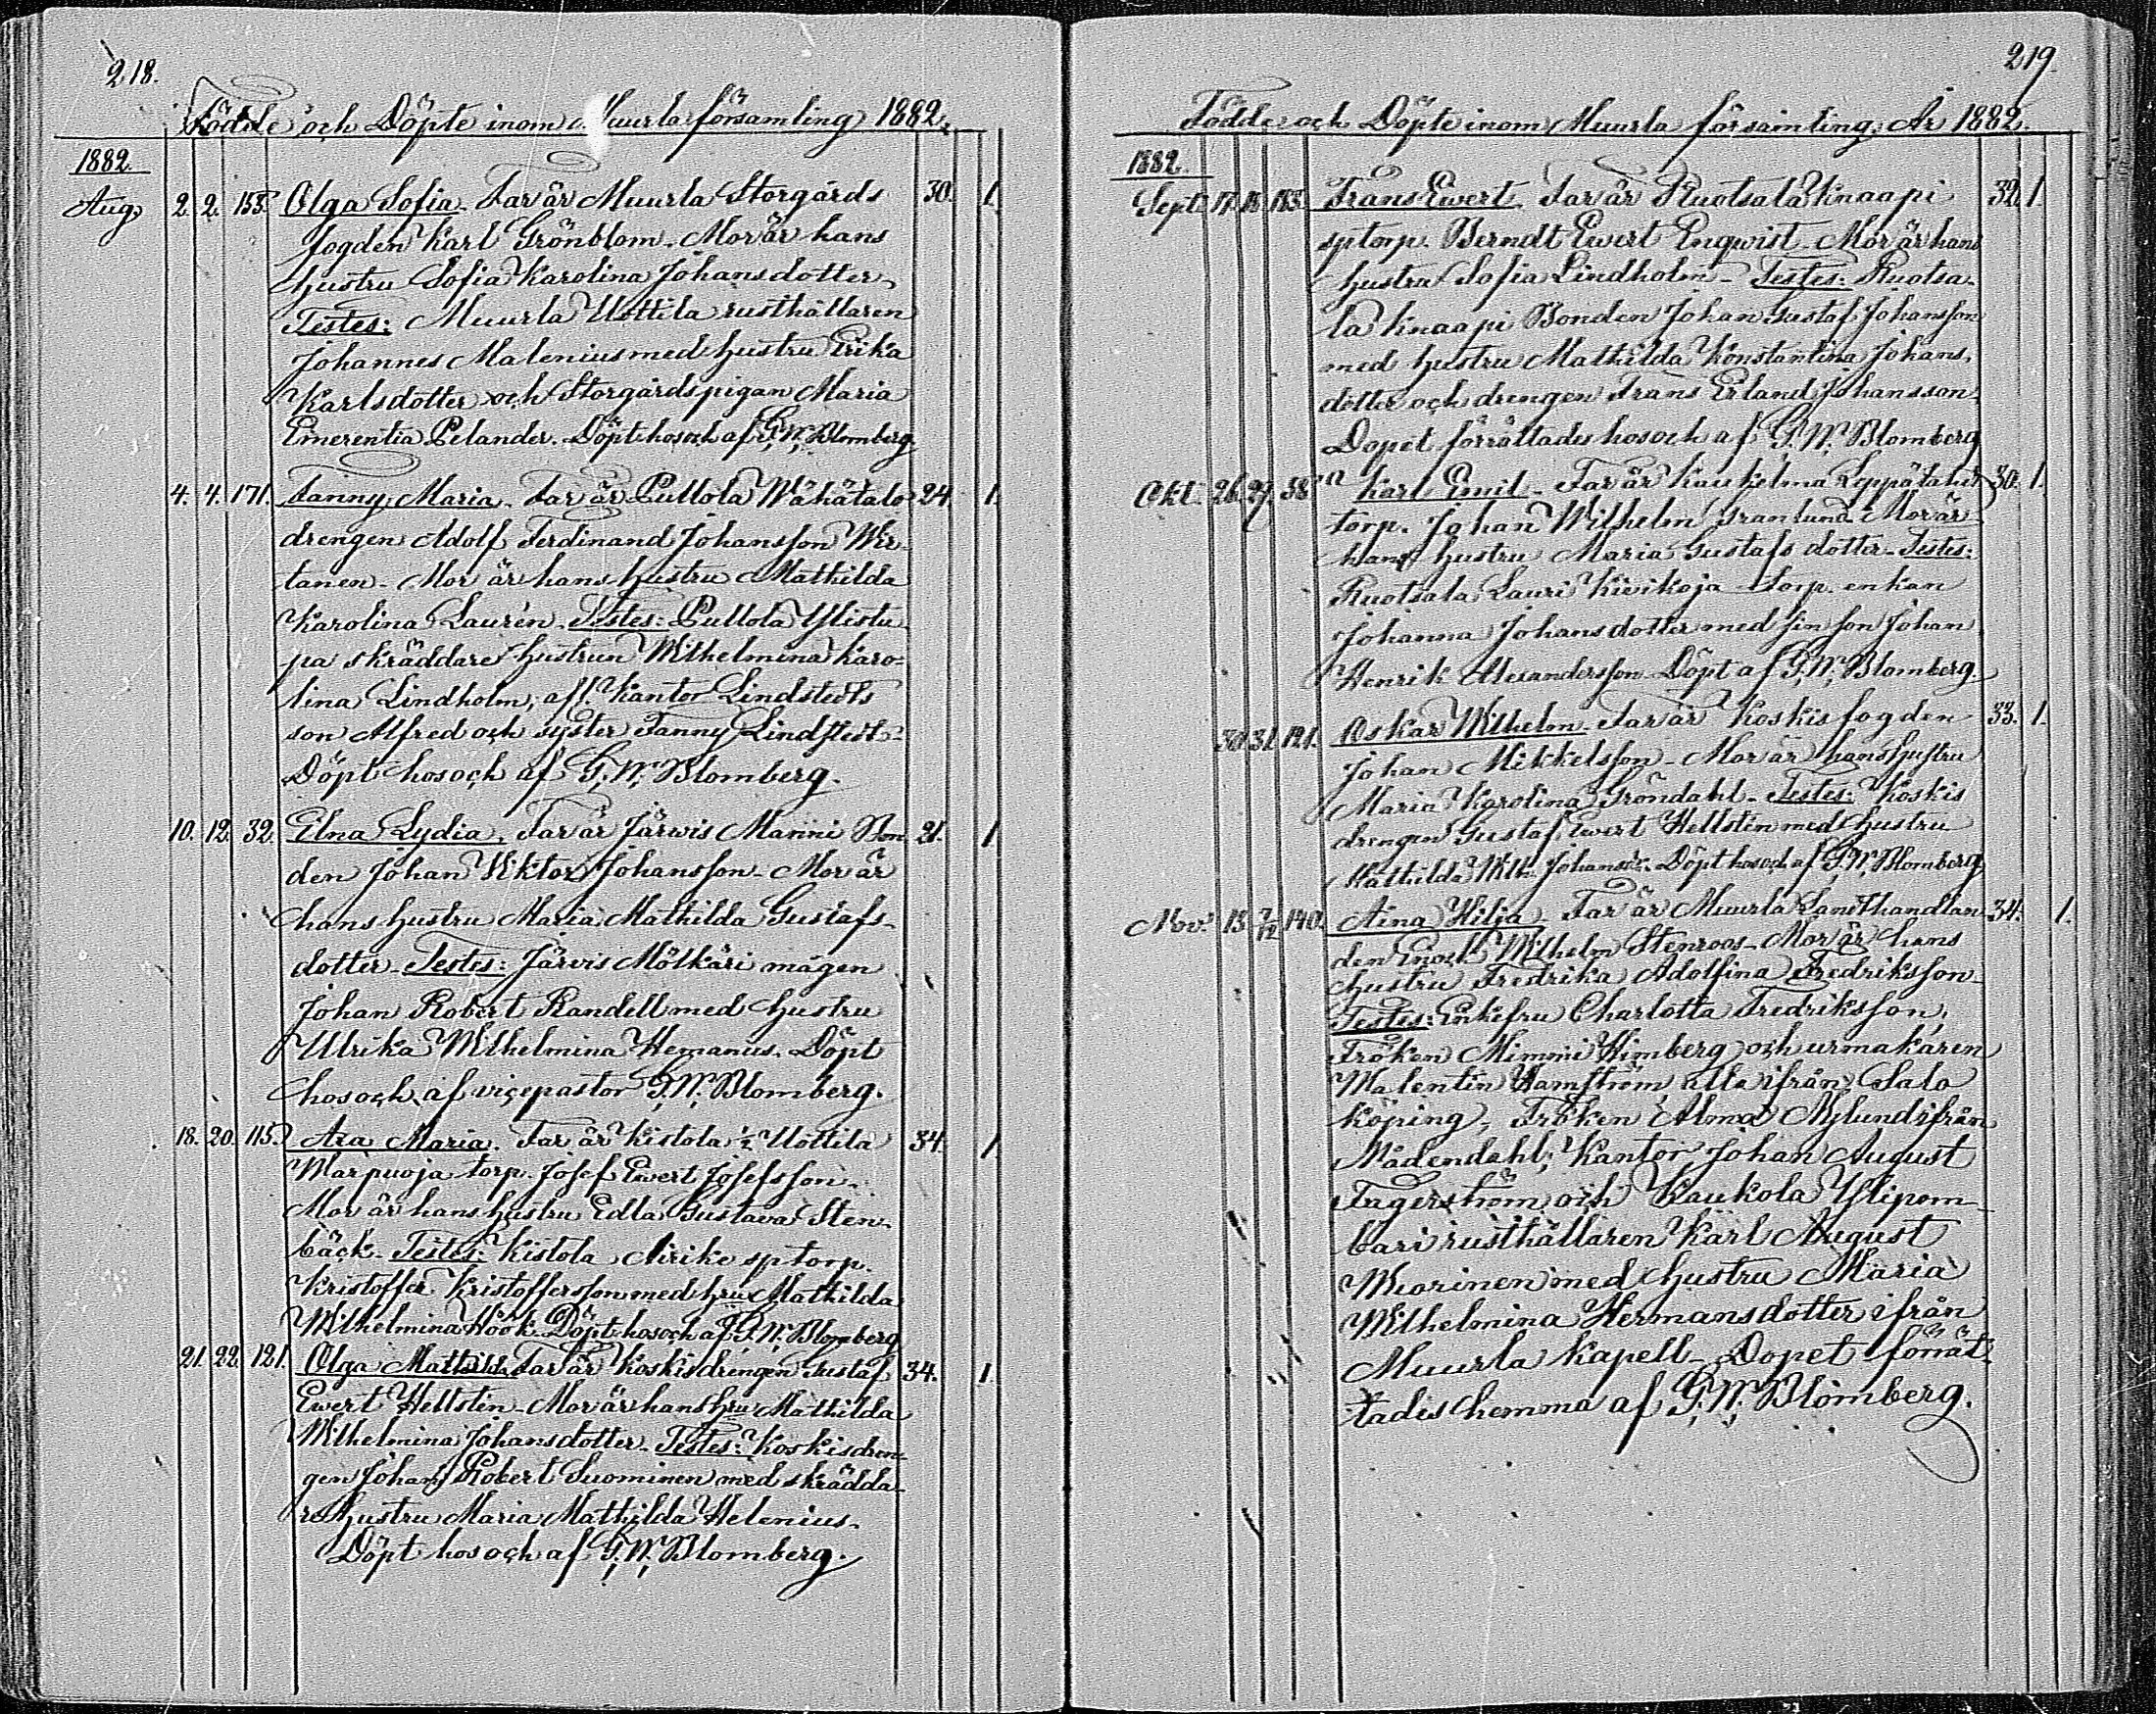 218.
Födde och Döpte inom Muurla församling 1882.
1882.
Aug. 2. 2. 153. Olga Sofia. Far är Muurla Storgårds 30. 1.
fogden Karl Grönblom. Mor är hans
hustru Sofia Karolina Johansdotter.
Testes: Muurla Uottila rusthållaren
Johannes Malenius med hustru Erika
Karlsdotter och Storgårdspigan Maria
Emerentia Pelander. Döpt hos och af G. W. Blomberg.
4. 4. 171. Fanny Maria. Far är Pullola Wähätalo 24. 1.
drengen Adolf Ferdinand Johansson Wir-
tanen. Mor är hans hustru Mathilda
Karolina Laurén. Testes: Pullola Ylistu-
pa skräddare hustrun Wilhelmina Karo-
lina Lindholm, afl. Kantor Lindstedts
son Alfred och syster Fanny Lindstedt.
Döpt hos och af G. W. Blomberg.
10. 12. 32. Elna Lydia. Far är Järwis Manni Bon- 21. 1.
den Johan Wiktor Johansson. Mor är
hans hustru Maria Mathilda Gustafs-
dotter. Testes: Järvis Mölkäri mågen
Johan Robert Randell med hustru
Ulrika Wilhelmina Hemanus. Döpt
hos och af vicepastor G. W. Blomberg.
18. 20. 115. Ara Maria. Far är Kistola ½ Uottila 34. 1.
Marpuoja torp. Josef Ewert Josefsson.
Mor är hans hustru Edla Gustava Sten-
bäck. Testes: Kistola Nirike sptorp.
Kristoffer Kristoffersson med hru Mathilda
Wilhelmina Höök. Döpt hos och af G. W. Blomberg
21. 22. 121. Olga Mathilda. Far är Koskis drengen Gustaf 34. 1.
Ewert Hellstin. Mor är hans hru Mathilda
Wilhelmina Johansdotter. Testes: Koskis dren-
gen Johan Robert Suominen med skrädda-
re hustru Maria Mathilda Helenius.
Döpt hos och af G. W. Blomberg.
219.
Födde och Döpte inom Muurla församling År 1882.
1882.
Sept. 17. 18. 183. Frans Ewert. Far är Ruotsala Knaapi 32. 1.
sptorp. Berndt Ewert Enqwist. Mor är hans
hustru Sofia Lindholm. Testes: Ruotsa-
la Knaapi Bonden Johan Gustaf Johansson
med hustru Mathilda Konstantina Johans-
dotter och drengen Frans Erland Johansson.
Dopet förrättades hos och af G. W. Blomberg
Okt. 26. 27. 58. Karl Emil. Far är Kaukelma Leppälahti 30. 1.
torp. Johan Wilhelm Granlund. Mor är
hans hustru Maria Gustafs dotter. Testes:
Ruotsala Lauri Kivikoja torp. enkan
Johanna Johansdotter med sin son Johan
Henrik Alexandersson. Döpt af G. W. Blomberg.
30. 31. 121. Oskar Wilhelm. Far är Koskis fogden 33. 1.
Johan Mikkelsson. Mor är hans hustru
Maria Karolina Gröndahl. Testes: Koskis
drengen Gustaf Ewert Hellstin med hustru
Mathilda Wilh. Johansdr. Döpt hos och af G. W. Blomberg
Nov. 13. 3/12 140. Aina Hilja. Far är Muurla Landthandlan- 34. 1.
den Enoch Wilhelm Stenroos. Mor är hans
hustru Fredrika Adolfina Fredriksson.
Testes: Enkefru Charlotta Fredriksson,
Fröken Mimmi Himberg och urmakaren
Walentin Hamström alla ifrån Salo
köping, Fröken Alma Nylund ifrån
Nådendahl, Kantor Johan August
Fagerström och Kaukola Ylipom-
bari rusthållaren Karl August
Wuorinen med hustru Maria
Wilhelmina Hermansdotter ifrån
Muurla kapell. Dopet förrät-
tades hemma af G. W. Blomberg.